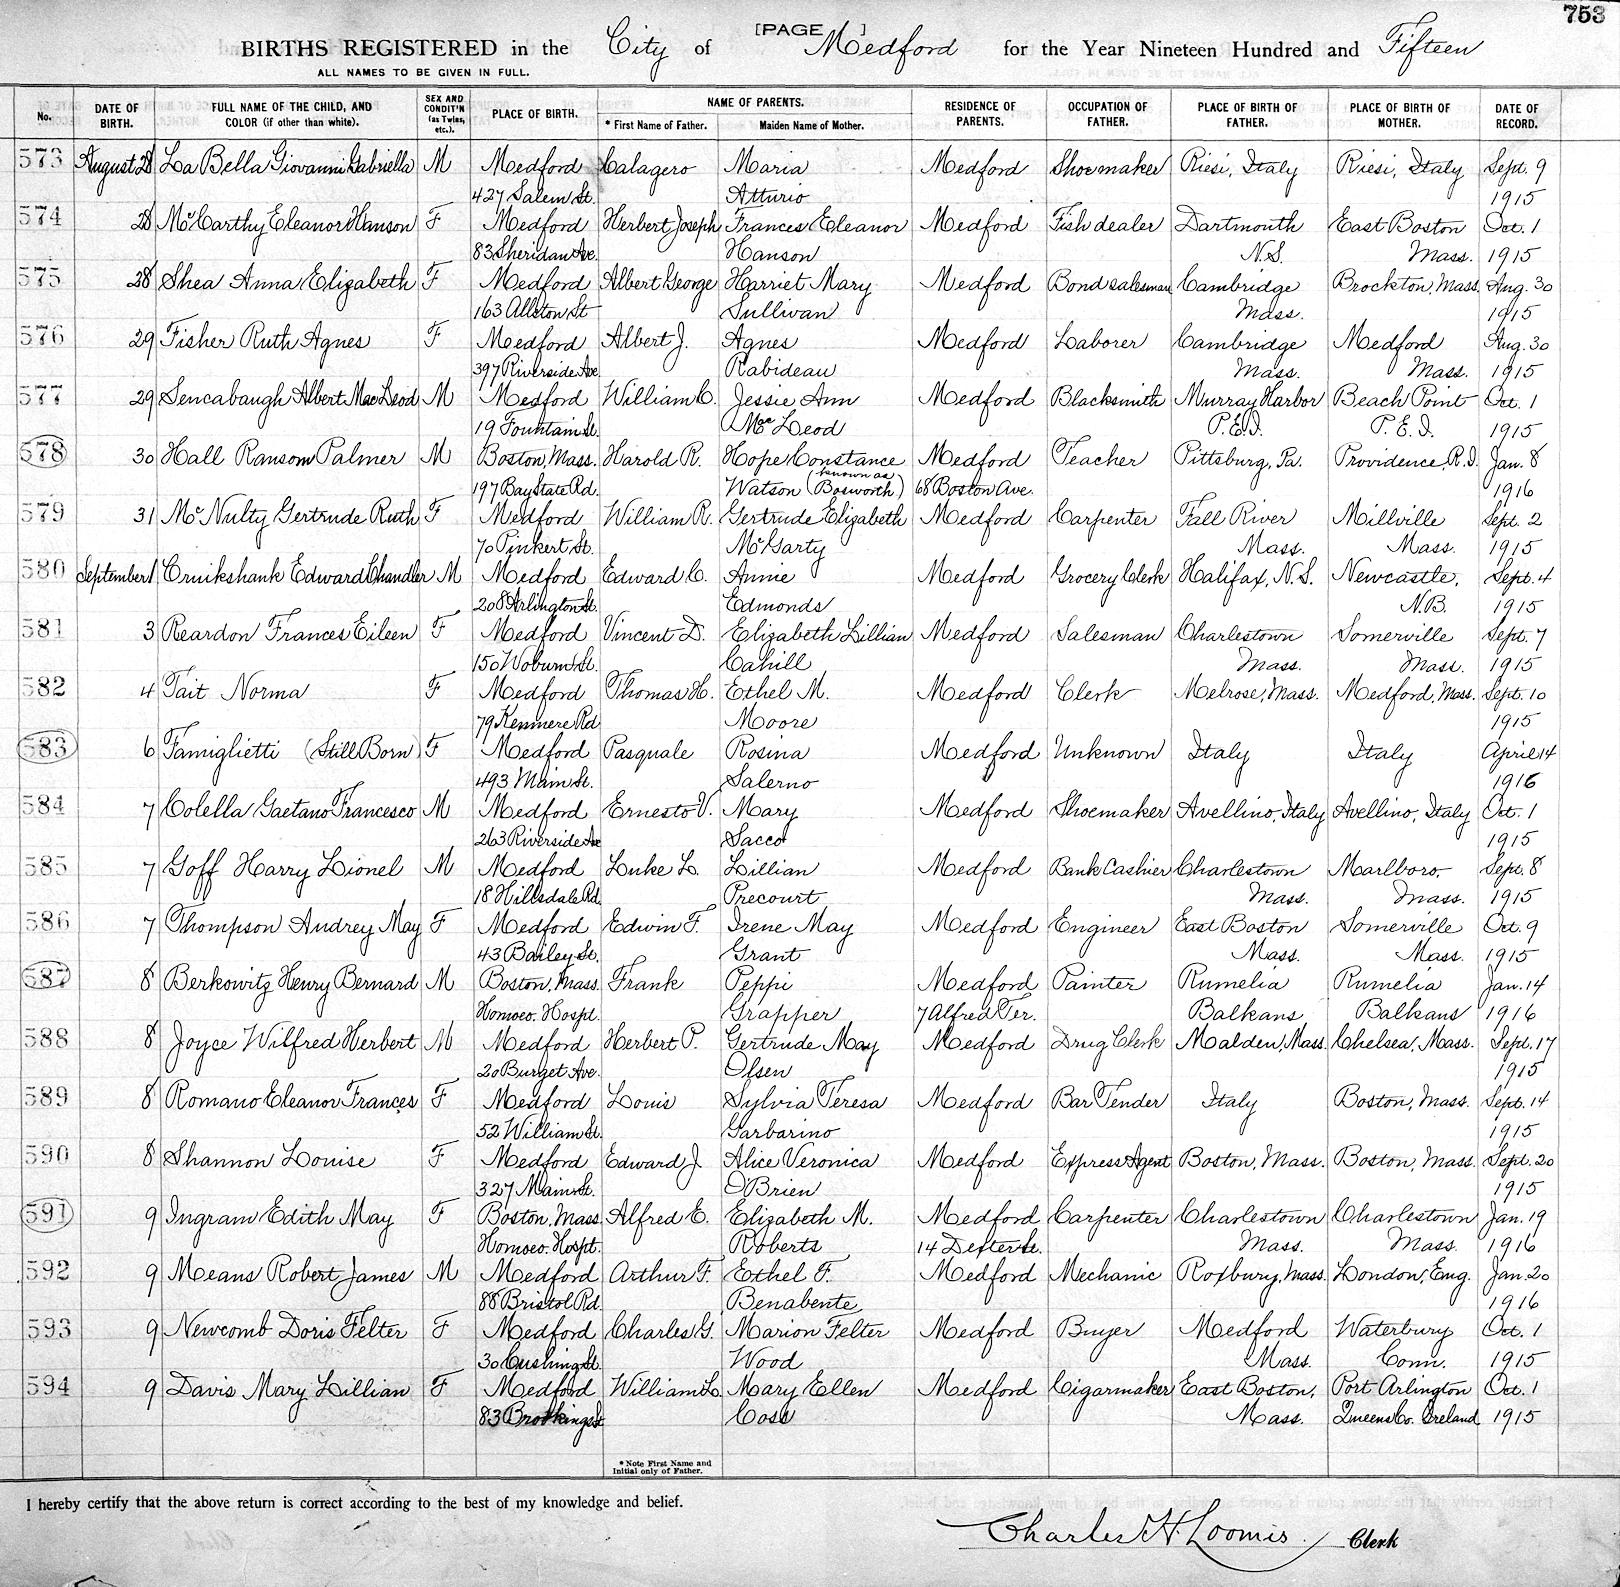 753
[PAGE ]
BIRTHS REGISTERED in the City of Medford for the Year Nineteen Hundred and Fifteen
ALL NAMES TO BE GIVEN IN FULL.
No. DATE OF BIRTH. FULL NAME OF THE CHILD, AND COLOR (if other than white). SEX AND CONDIT'N (as Twins, etc.). PLACE OF BIRTH. NAME OF PARENTS. * First Name of Father. Maiden Name of Mother. RESIDENCE OF PARENTS. OCCUPATION OF FATHER. PLACE OF BIRTH OF FATHER. PLACE OF BIRTH OF MOTHER. DATE OF RECORD.
573 August 28 La Bella Giovanni Gabriella M Medford Calagero Maria Medford Shoemaker Riesi, Italy Riesi, Italy Sept. 9
427 Salem St. Atturio 1915
574 28 McCarthy Eleanor Hanson F Medford Herbert Joseph Frances Eleanor Medford Fish dealer Dartmouth East Boston Oct. 1
83 Sheridan Ave. Hanson N.S. Mass. 1915
575 28 Shea Anna Elizabeth F Medford Albert George Harriet Mary Medford Bond salesman Cambridge Brockton, Mass. Aug. 30
163 Allston St Sullivan Mass. 1915
576 29 Fisher Ruth Agnes F Medford Albert J. Agnes Medford Laborer Cambridge Medford Aug. 30
397 Riverside Ave Rabideau Mass. Mass. 1915
577 29 Sencabaugh Albert MacLeod M Medford William C. Jessie Ann Medford Blacksmith Murray Harbor Beach Point Oct. 1
19 Fountain St. McLeod P.E.I. P.E.I. 1915
578 30 Hall Ransom Palmer M Boston, Mass. Harold R. Hope Constance Medford Teacher Pittsburg, Pa. Providence, R.I. Jan. 8
197 Bay State Rd. Watson (known as Bosworth) 68 Boston Ave. 1916
579 31 McNulty Gertrude Ruth F Medford William R. Gertrude Elizabeth Medford Carpenter Fall River Millville Sept. 2
70 Pinkert St. McGarty Mass. Mass. 1915
580 September 1 Cruikshank Edward Chandler M Medford Edward C. Annie Medford Grocery Clerk Halifax, N.S. Newcastle, Sept. 4
208 Arlington St. Edmonds N.B. 1915
581 3 Reardon Frances Eileen F Medford Vincent D. Elizabeth Lillian Medford Salesman Charlestown Somerville Sept. 7
150 Woburn St. Cahill Mass. Mass. 1915
582 4 Tait Norma F Medford Thomas H. Ethel M. Medford Clerk Melrose, Mass. Medford, Mass. Sept. 10
79 Kenmere Rd Moore 1915
583 6 Famiglietti (Still Born) F Medford Pasquale Rosina Medford Unknown Italy Italy April 14
493 Main St. Salerno 1916
584 7 Colella Gaetano Francesco M Medford Ernesto V. Mary Medford Shoemaker Avellino, Italy Avellino, Italy Oct. 1
263 Riverside Ave Sacco 1915
585 7 Goff Harry Lionel M Medford Luke L. Lillian Medford Bank Cashier Charlestown Marlboro, Sept. 8
18 Hillsdale Rd Precourt Mass. Mass. 1915
586 7 Thompson Audrey May F Medford Edwin F. Irene May Medford Engineer East Boston Somerville Oct. 9
43 Bailey St. Grant Mass. Mass. 1915
587 8 Berkowitz Henry Bernard M Boston, Mass. Frank Peppi Medford Painter Rumelia Rumelia Jan. 14
Homoeo. Hospl. Grapper 7 Alfred Ter. Balkans Balkans 1916
588 8 Joyce Wilfred Herbert M Medford Herbert P. Gertrude May Medford Drug Clerk Malden, Mass. Chelsea, Mass. Sept. 17
20 Burget Ave. Olsen 1915
589 8 Romano Eleanor Frances F Medford Louis Sylvia Teresa Medford Bar Tender Italy Boston, Mass. Sept. 14
52 William St. Garbarino 1915
590 8 Shannon Louise F Medford Edward J. Alice Veronica Medford Express Agent Boston, Mass. Boston, Mass. Sept. 20
327 Main St. O'Brien 1915
591 9 Ingram Edith May F Boston, Mass Alfred E. Elizabeth M. Medford Carpenter Charlestown Charlestown Jan. 19
Homoeo. Hospt. Roberts 14 Dexter St. Mass. Mass. 1916
592 9 Means Robert James M Medford Arthur F. Ethel F. Medford Mechanic Roxbury, Mass. London, Eng. Jan. 20
88 Bristol Rd. Benabente 1916
593 9 Newcomb Doris Felter F Medford Charles G. Marion Felter Medford Buyer Medford Waterbury Oct. 1
30 Cushing St. Wood Mass. Conn. 1915
594 9 Davis Mary Lillian F Medford William L. Mary Ellen Medford Cigarmaker East Boston, Port Arlington Oct. 1
83 Brookings St Coss Mass. Queens Co. Ireland 1915
* Note First Name and
Initial only of Father.
I hereby certify that the above return is correct according to the best of my knowledge and belief.
Charles H. Loomis. Clerk